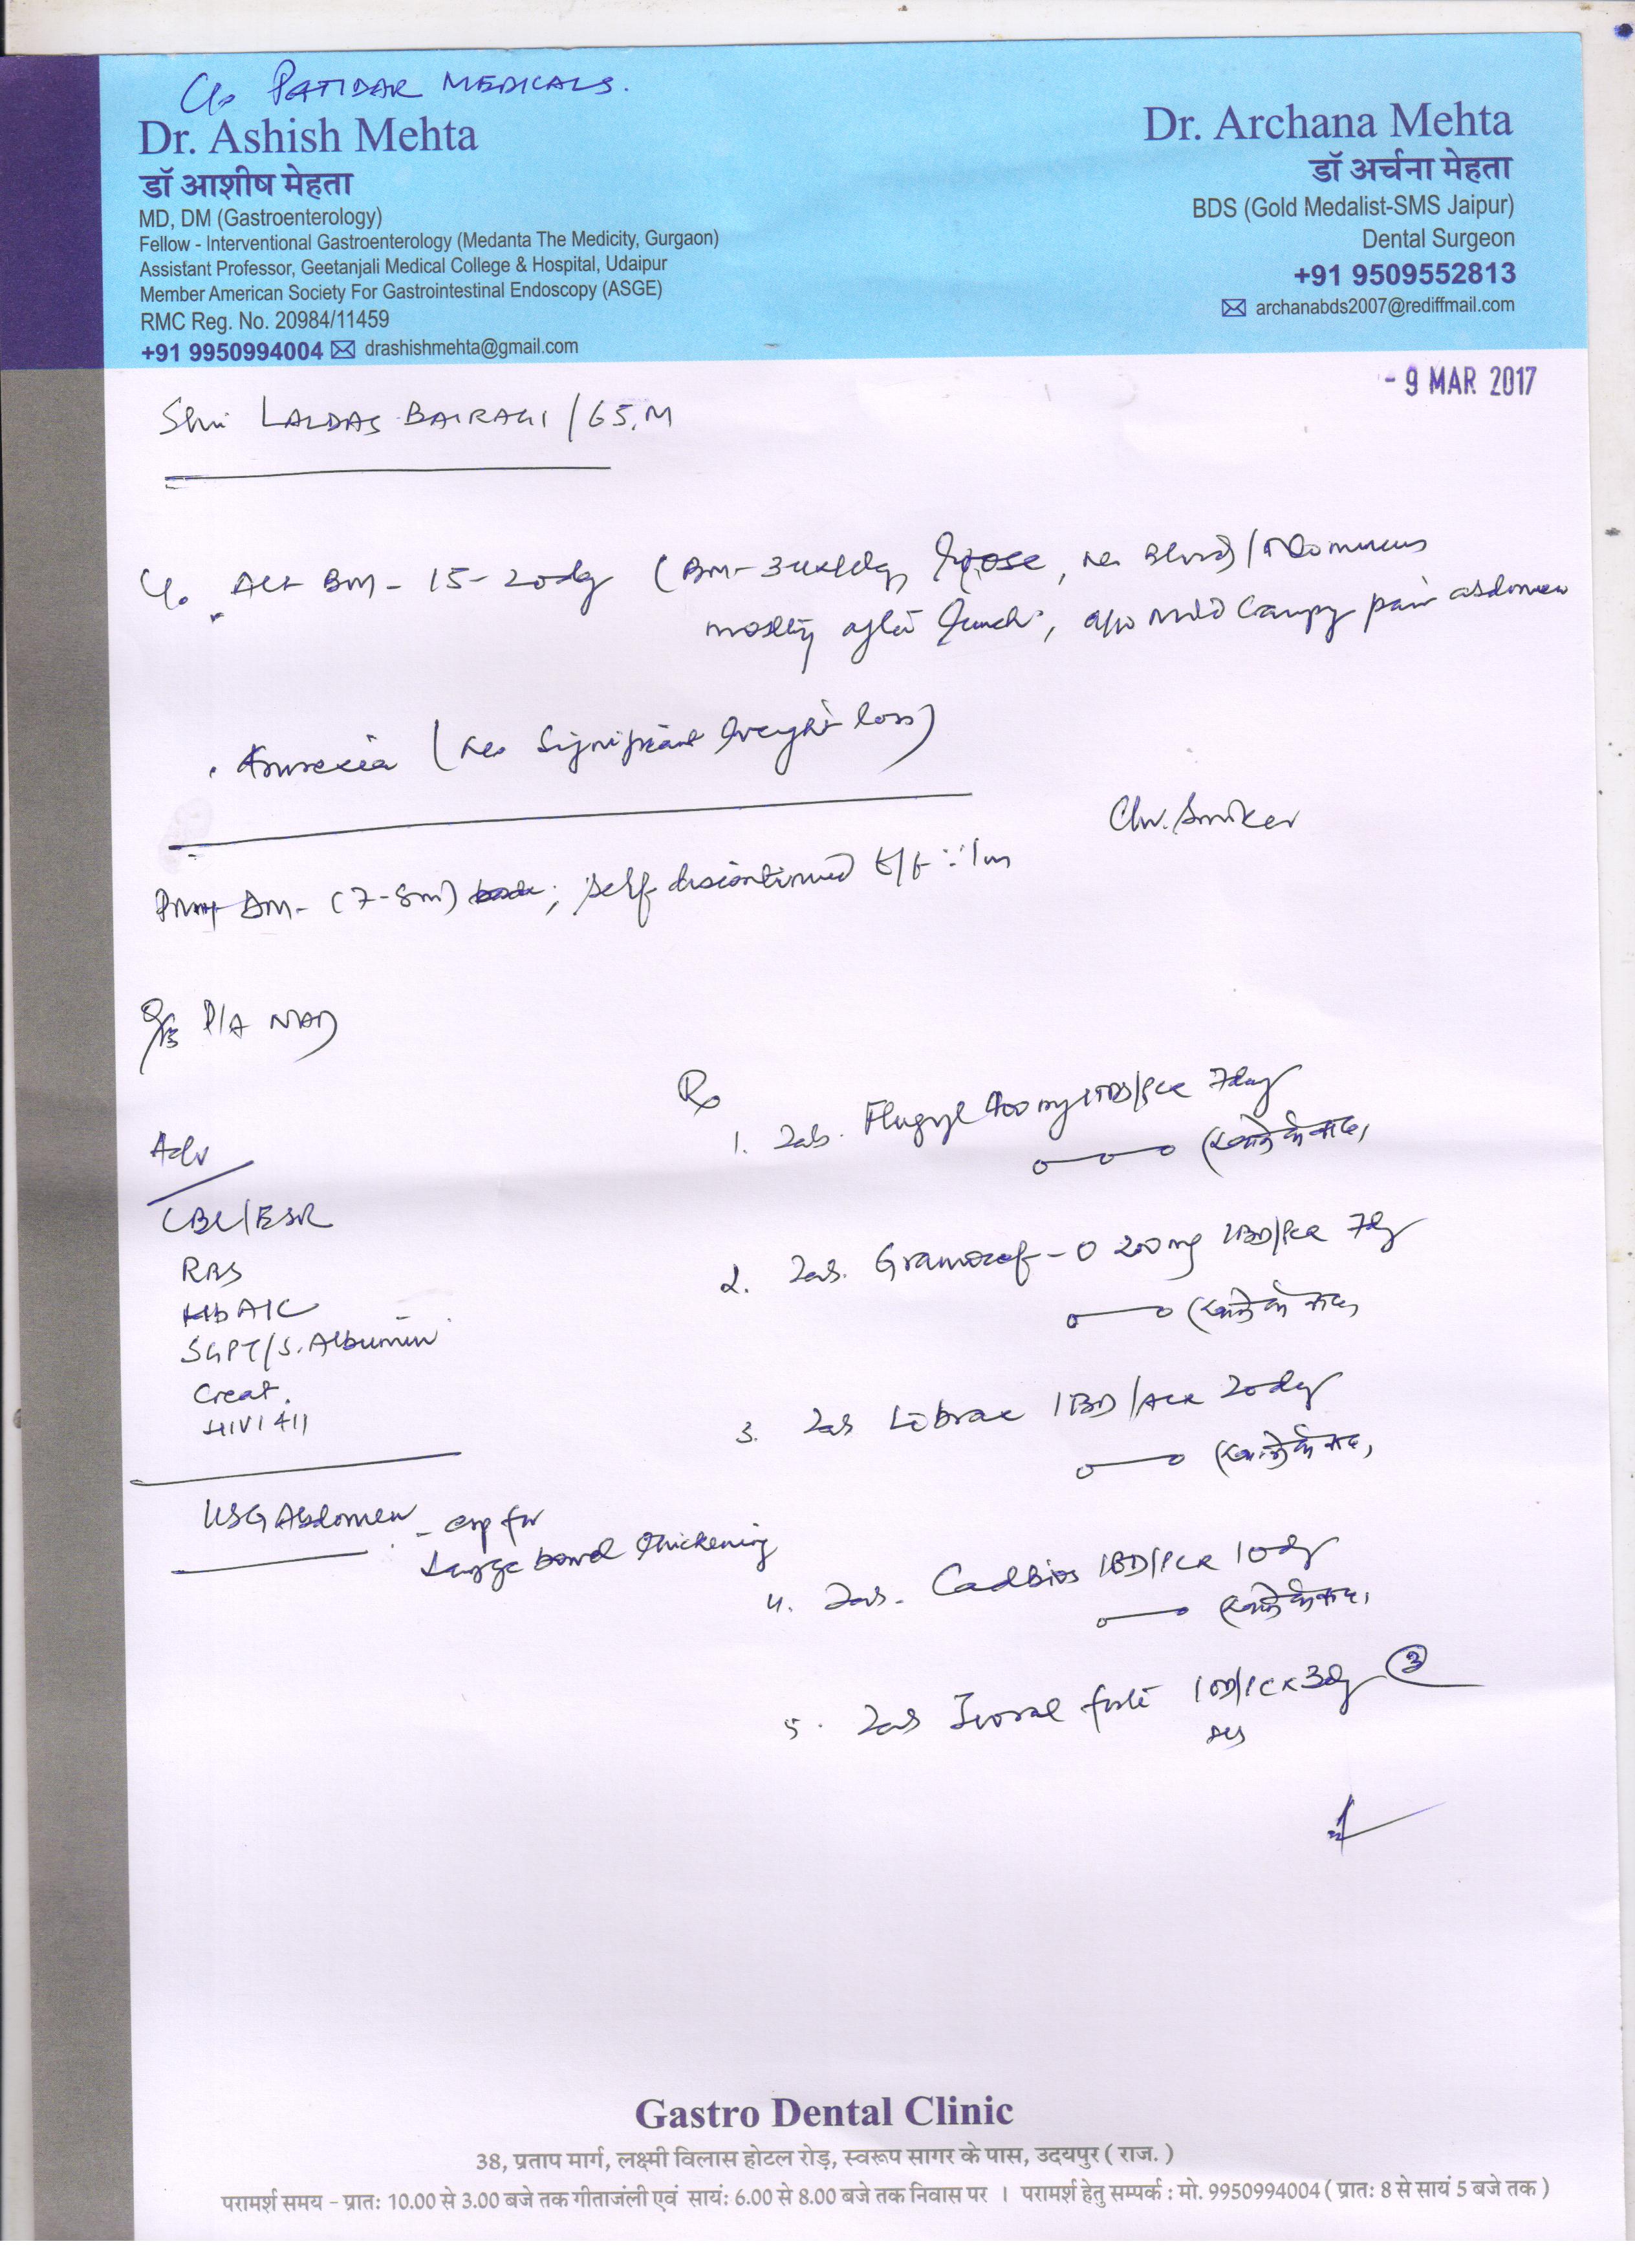 C/o PATIDAR MEDICALS.
Dr. Ashish Mehta
डॉ आशीष मेहता
MD, DM (Gastroenterology)
Fellow - Interventional Gastroenterology (Medanta The Medicity, Gurgaon)
Assistant Professor, Geetanjali Medical College & Hospital, Udaipur
Member American Society For Gastrointestinal Endoscopy (ASGE)
RMC Reg. No. 20984/11459
+91 9950994004 drashishmehta@gmail.com
Dr. Archana Mehta
डॉ अर्चना मेहता
BDS (Gold Medalist-SMS Jaipur)
Dental Surgeon
+91 9509552813
archanabds2007@rediffmail.com
- 9 MAR 2017
Shri LALDAS BAIRAGI / 65, M
C/o Alt BM - 15-20 day (BM- loose, no Blood / No mucus
mostly after lunch, mild crampy pain abdomen
Anorexia (no significant weight loss)
Chr. Smoker
DM - (7-8m) ; self discontinued
O/E P/A NAD
Adv
CBC/ESR
RBS
HbA1C
SGPT/S. Albumin
Creat.
HIV I & II
USG Abdomen - esp for
Large bowel thickening
Rx
1. Tab. Flagyl 400 mg 1TDS/PC x 7day
(खाने के बाद)
2. Tab. Gramocef-O 200 mg 1BD/PC x 7dy
(खाने के बाद)
3. Tab Librax 1BD/AC x 20dy
4. Tab. Cadbios 1BD/PC x 10dy
(खाने के बाद)
5. Tab forte 1OD/PC x 3dy 3
Gastro Dental Clinic
38, प्रताप मार्ग, लक्ष्मी विलास होटल रोड़, स्वरूप सागर के पास, उदयपुर ( राज. )
परामर्श समय - प्रातः 10.00 से 3.00 बजे तक गीताजंली एवं सायंः 6.00 से 8.00 बजे तक निवास पर । परामर्श हेतु सम्पर्क : मो. 9950994004 ( प्रातः 8 से सायं 5 बजे तक )